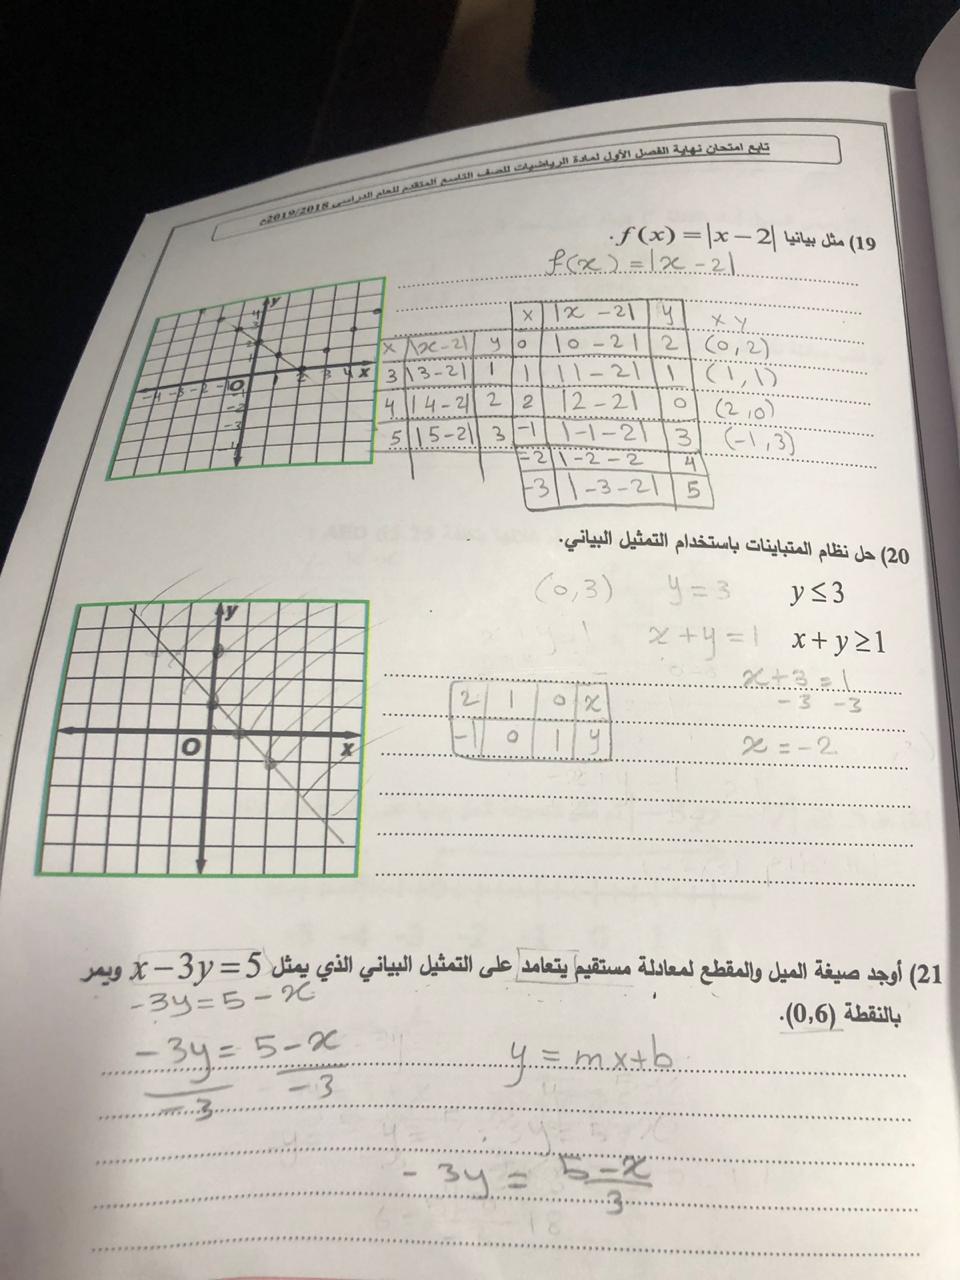 تابع امتحان نهاية الفصل الأول لمادة الرياضيات للصف التاسع المتقدم للعام الدراسي 2019/2018م
19) مثل بيانيا f(x) = |x − 2| .
f(x) = |x − 2|
x |x − 2| y x y
0 |0 − 2| 2 (0, 2)
1 |1 − 2| 1 (1, 1)
2 |2 − 2| 0 (2, 0)
-1 |-1 − 2| 3 (-1, 3)
-2 |-2 − 2 4
-3 |-3 − 2| 5
x |x − 2| y
3 |3 − 2| 1
4 |4 − 2| 2
5 |5 − 2| 3
y
4
3
2
-4 -3 -2 -1 O 1 2 3 4 x
-2
-3
20) حل نظام المتباينات باستخدام التمثيل البياني.
(0, 3) y = 3 y ≤ 3
x + y = 1 x + y ≥ 1
x + 3 = 1
- 3 -3
x = -2
2 1 0 x
-1 0 1 y
y
O x
21) أوجد صيغة الميل والمقطع لمعادلة مستقيم يتعامد على التمثيل البياني الذي يمثل x − 3y = 5 ويمر
بالنقطة (0,6).
-3y = 5 - x
-3y = 5 - x
-3 -3
y = mx + b
-3y = 5 - x
3